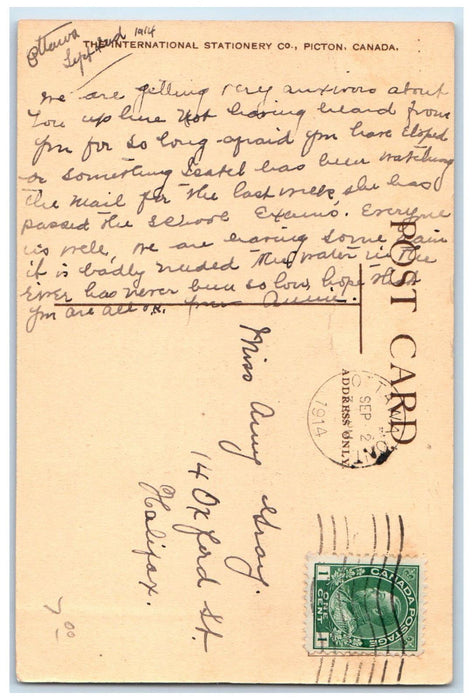 Ottawa
Sept 2nd 1914
THE INTERNATIONAL STATIONERY CO., PICTON, CANADA.
We are getting very anxious about
you up here not having heard from
you for so long - afraid you have eloped
or something Isabel has been watching
the mail for the last week she has
passed the school Exams. Everyone
is well, we are having some rain
it is badly needed the water in the
river has never been so low, hope that
you are all O.K. your Annie.
POST CARD
ADDRESS ONLY
OTTAWA ONT
SEP 2
1914
Miss Amy Gray.
14 Oxford St.
Halifax.
CANADA POSTAGE
1 ONE CENT 1
7.00